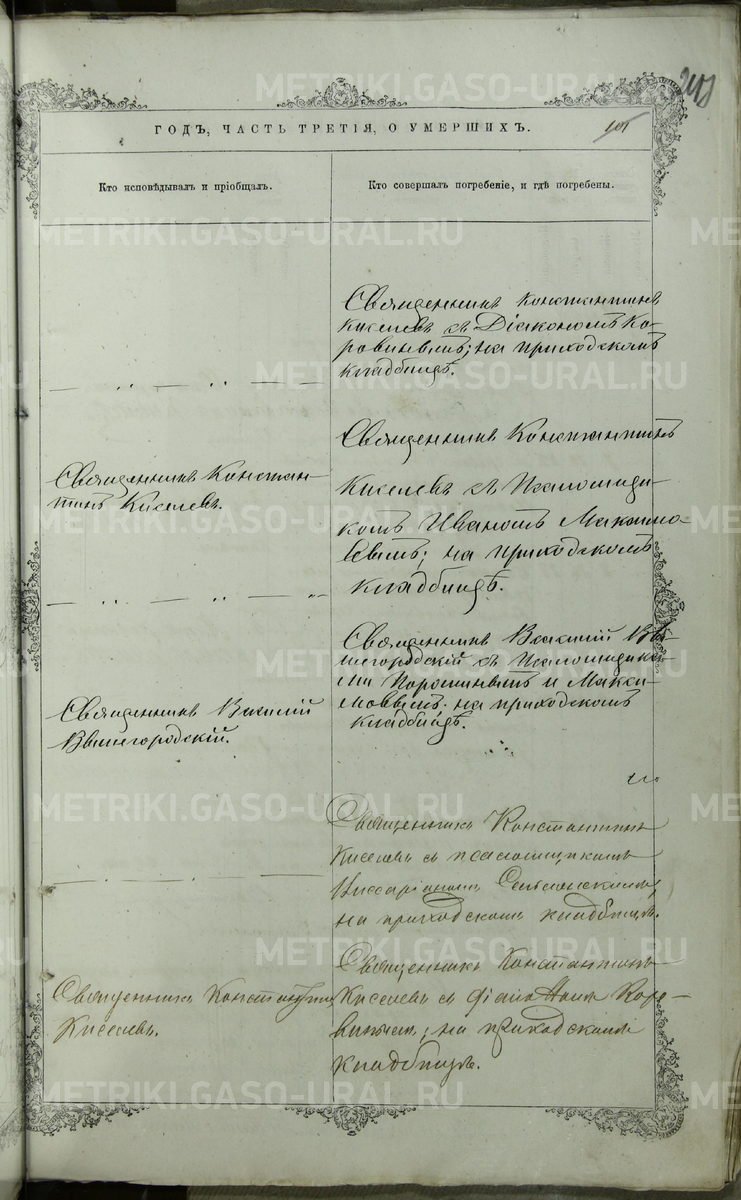 218
ГОДЪ, ЧАСТЬ ТРЕТІЯ, О УМЕРШИХЪ.
101
Кто исповѣдывалъ и пріобщалъ.
Кто совершалъ погребеніе, и гдѣ погребены.
Священникъ Константинъ
Киселевъ съ Діакономъ Ко-
ровинымъ; на приходскомъ
кладбищѣ.
Священникъ Констан-
тинъ Киселевъ.
Священникъ Константинъ
Киселевъ съ Псаломщи-
комъ Иваномъ Максимо-
вымъ; на приходскомъ
кладбищѣ.
Священникъ Василій
Вышегородскій.
Священникъ Василій Вы-
шегородскій съ Псаломщика-
ми Порошинымъ и Макси-
мовымъ. на приходскомъ
кладбищѣ.
Священникъ Константинъ
Киселевъ съ псаломщикомъ
на приходскомъ кладбищѣ.
Священникъ Константинъ
Киселевъ.
Священникъ Константинъ
Киселевъ съ діакономъ Коро-
винымъ; на приходскомъ
кладбищѣ.
METRIKI.GASO-URAL.RU